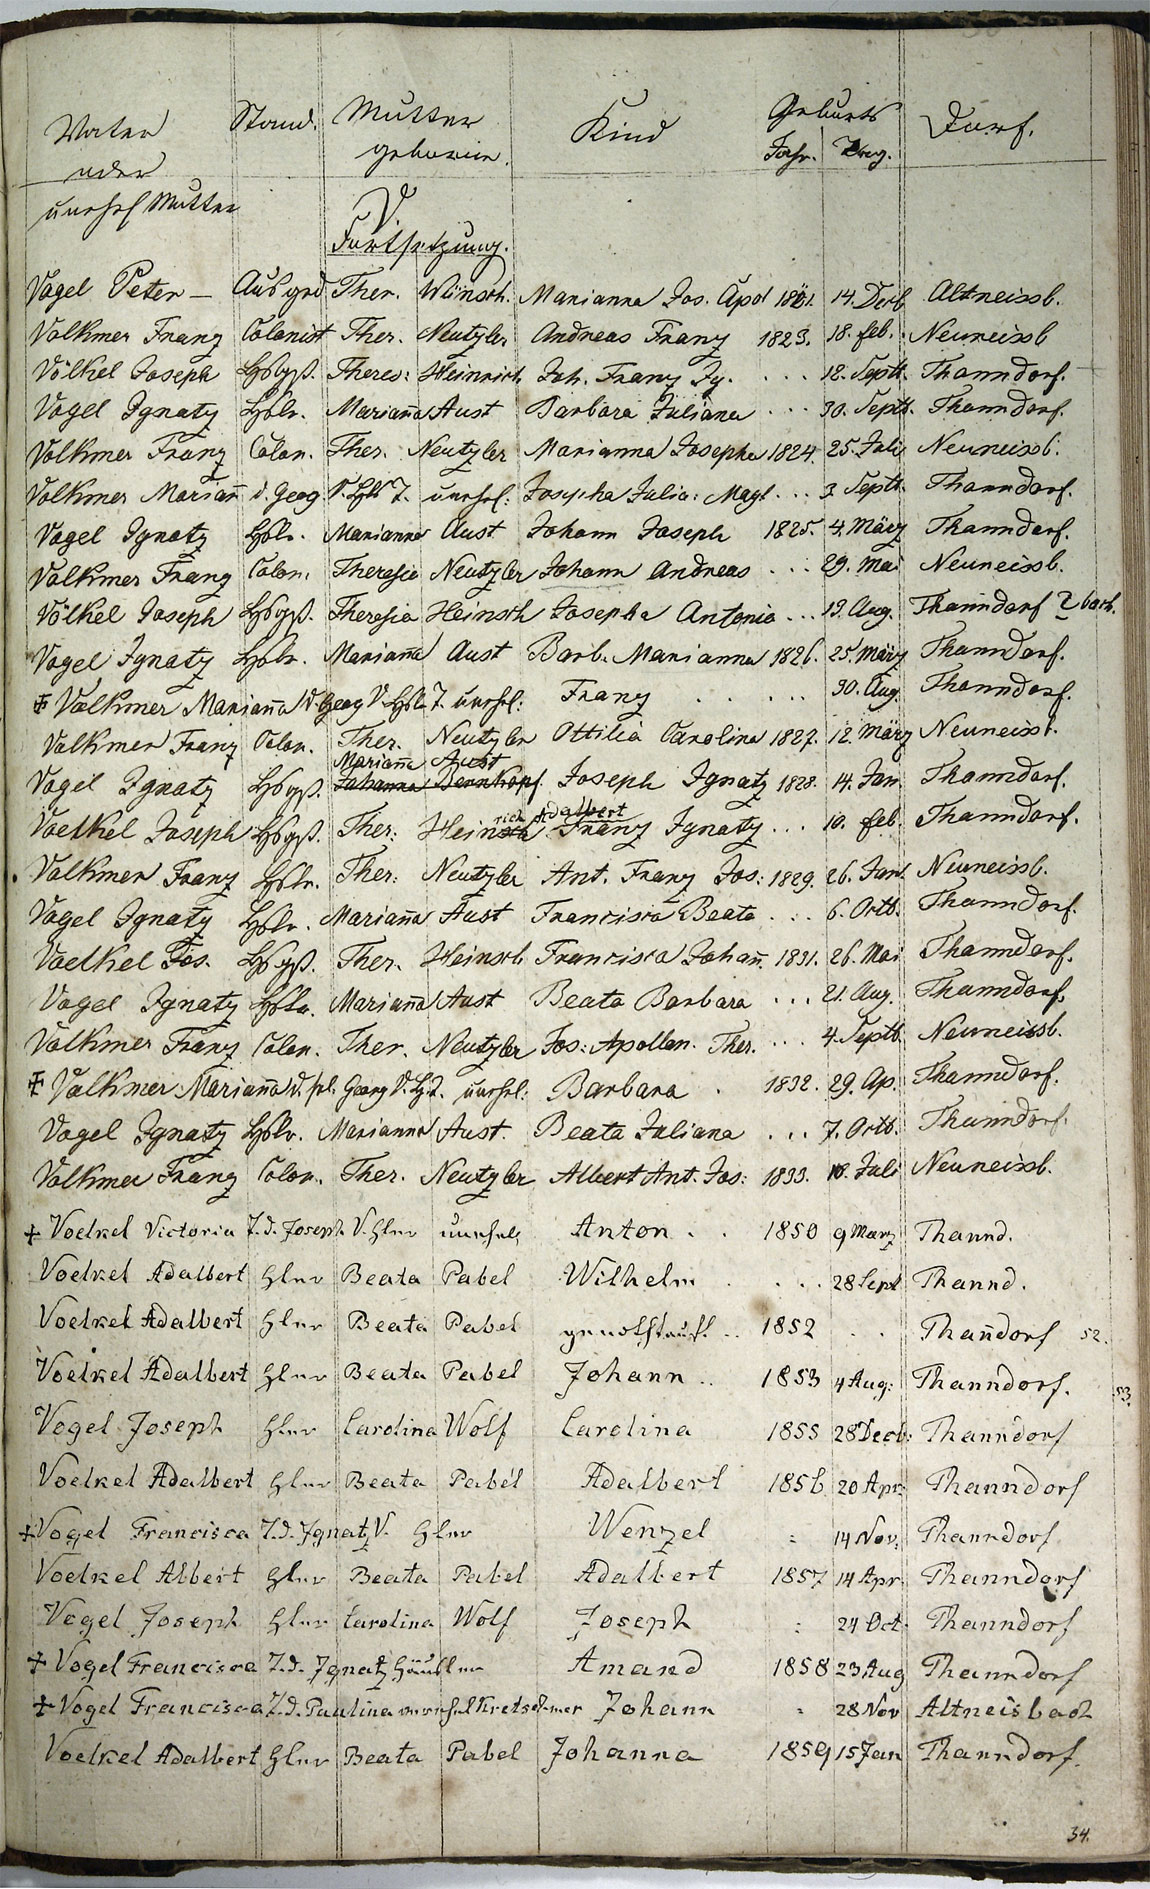 Vater Stand. Mutter Kind Geburts Dorf.
oder geborene. Jahr. Tag.
unehel Mutter
V.
Fortsetzung.
Vogel Peter — Ausgrd Ther. Wünsch. Marianna Jos. Apol 1821. 14. Decb Altneissb.
Volkmer Franz Colonist Ther. Neutzler Andreas Franz 1823. 18. feb. Neuneissb
Völkel Joseph Hsbgß. Theres: Heinrich Joh. Franz Ig. . . . 12. Septb. Thanndorf.
Vogel Ignatz Hslr. Mariana Aust Barbara Juliana . . . 30. Septb. Thanndorf.
Volkmer Franz Colon. Ther. Neutzler Marianna Josepha 1824. 25. Juli Neuneissb.
Volkmer Mariañ d. Georg V. Hsl T. unehel: Josepha Julia: Magl. . . . 3 Septb. Thanndorf.
Vogel Ignatz Hslr. Marianna Aust Johann Joseph 1825. 4. März Thanndorf.
Volkmer Franz Colon. Theresia Neutzler Johann Andreas . . . 29. Mai Neuneissb.
Völkel Joseph Hsbgß. Theresia Heinrich Josepha Antonia . . . 19. Aug. Thanndorf
Vogel Ignatz Hslr. Mariañа Aust Barb. Marianna 1826. 25. März Thanndorf.
‡ Volkmer Mariañа d. Georg V. Hsl T. unehel: Franz . . . . 30. Aug. Thanndorf.
Volkmer Franz Colon. Ther. Neutzler Ottilia Carolina 1827. 12. März Neuneissb.
Mariaña Aust
Vogel Ignatz Hsbgß. Johanna Bernkopf Joseph Ignatz 1828. 14. Jan. Thanndorf.
rich Adalbert
Voelkel Joseph Hsbgß. Ther: Heinrich Franz Ignatz . . . 10. feb. Thanndorf.
Volkmer Franz Hslr. Ther: Neutzler Ant. Franz Jos: 1829. 26. Jan. Neuneissb.
Vogel Ignatz Hslr. Mariaña Aust Francisca Beata . . . 6. Octb. Thanndorf.
Voelkel Jos. Hsbgß. Ther. Heinrich Francisca Johañ. 1831. 26. Mai Thanndorf.
Vogel Ignatz Hslr. Mariaña Aust Beata Barbara . . . 21. Aug. Thanndorf.
Volkmer Franz Colon. Ther. Neutzler Jos: Apollon. Ther. . . . 4. Septb. Neuneissb.
‡ Volkmer Mariaña d. sel. Georg V. Hsl. unehel: Barbara . 1832. 29. Ap. Thanndorf.
Vogel Ignatz Hslr. Marianna Aust. Beata Juliana . . . 7. Octb. Thanndorf.
Volkmer Franz Colon. Ther. Neutzler Albert Ant. Jos: 1833. 10. Juli Neuneissb.
+ Voelkel Victoria T. d. Joseph V. Hler unehel Anton . . 1850 9 März Thannd.
Voelkel Adalbert Hler Beata Pabel Wilhelm . . . . 28 Sept Thannd.
Voelkel Adalbert Hler Beata Pabel genothtauft .. 1852 . . Thañdorf 52.
Voelkel Adalbert Hler Beata Pabel Johann .. 1853 4 Aug: Thanndorf. 53.
Vogel Joseph Hler Carolina Wolf Carolina 1855 28 Decb: Thanndorf
Voelkel Adalbert Hler Beata Pabel Adalbert 1856 20 Apr: Thanndorf
+ Vogel Francisca T. d. Ignatz V. Hler Wenzel : 14 Nov. Thanndorf
Voelkel Albert Hler Beata Pabel Adalbert 1857 14 Apr. Thanndorf
Vogel Joseph Hler Carolina Wolf Joseph : 24 Oct. Thanndorf
+ Vogel Francisca T. d. Ignatz Häusler Amand 1858 23 Aug Thanndorf
+ Vogel Francisca T. d. Paulina unehel Kretschmer Johann : 28 Nov Altneisbach
Voelkel Adalbert Hler Beata Pabel Johanna 1859 15 Jan Thanndorf.
34.